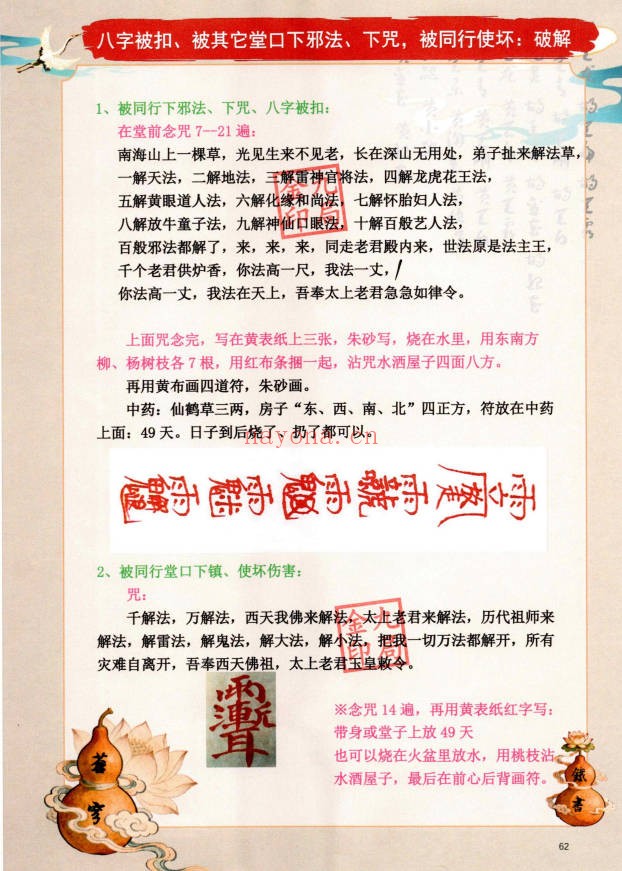 八字被扣、被其它堂口下邪法、下咒，被同行使坏：破解
1、被同行下邪法、下咒、八字被扣：
在堂前念咒 7--21 遍：
南海山上一棵草，光见生来不见老，长在深山无用处，弟子扯来解法草，
一解天法，二解地法，三解雷神官将法，四解龙虎花王法，
五解黄眼道人法，六解化缘和尚法，七解怀胎妇人法，
八解放牛童子法，九解神仙口眼法，十解百般艺人法，
百般邪法都解了，来，来，来，同走老君殿内来，世法原是法主王，
千个老君供炉香，你法高一尺，我法一丈，
你法高一丈，我法在天上，吾奉太上老君急急如律令。
上面咒念完，写在黄表纸上三张，朱砂写，烧在水里，用东南方
柳、杨树枝各 7 根，用红布条捆一起，沾咒水洒屋子四面八方。
再用黄布画四道符，朱砂画。
中药：仙鹤草三两，房子“东、西、南、北”四正方，符放在中药
上面：49 天。日子到后烧了、扔了都可以。
nayona.cn
2、被同行堂口下镇、使坏伤害：
咒：
千解法，万解法，西天我佛来解法，太上老君来解法，历代祖师来
解法，解雷法，解鬼法，解大法，解小法，把我一切万法都解开，所有
灾难自离开，吾奉西天佛祖，太上老君玉皇敕令。
※念咒 14 遍，再用黄表纸红字写：
带身或堂子上放 49 天
也可以烧在火盆里放水，用桃枝沾
水洒屋子，最后在前心后背画符。
苍穹
铁书
62